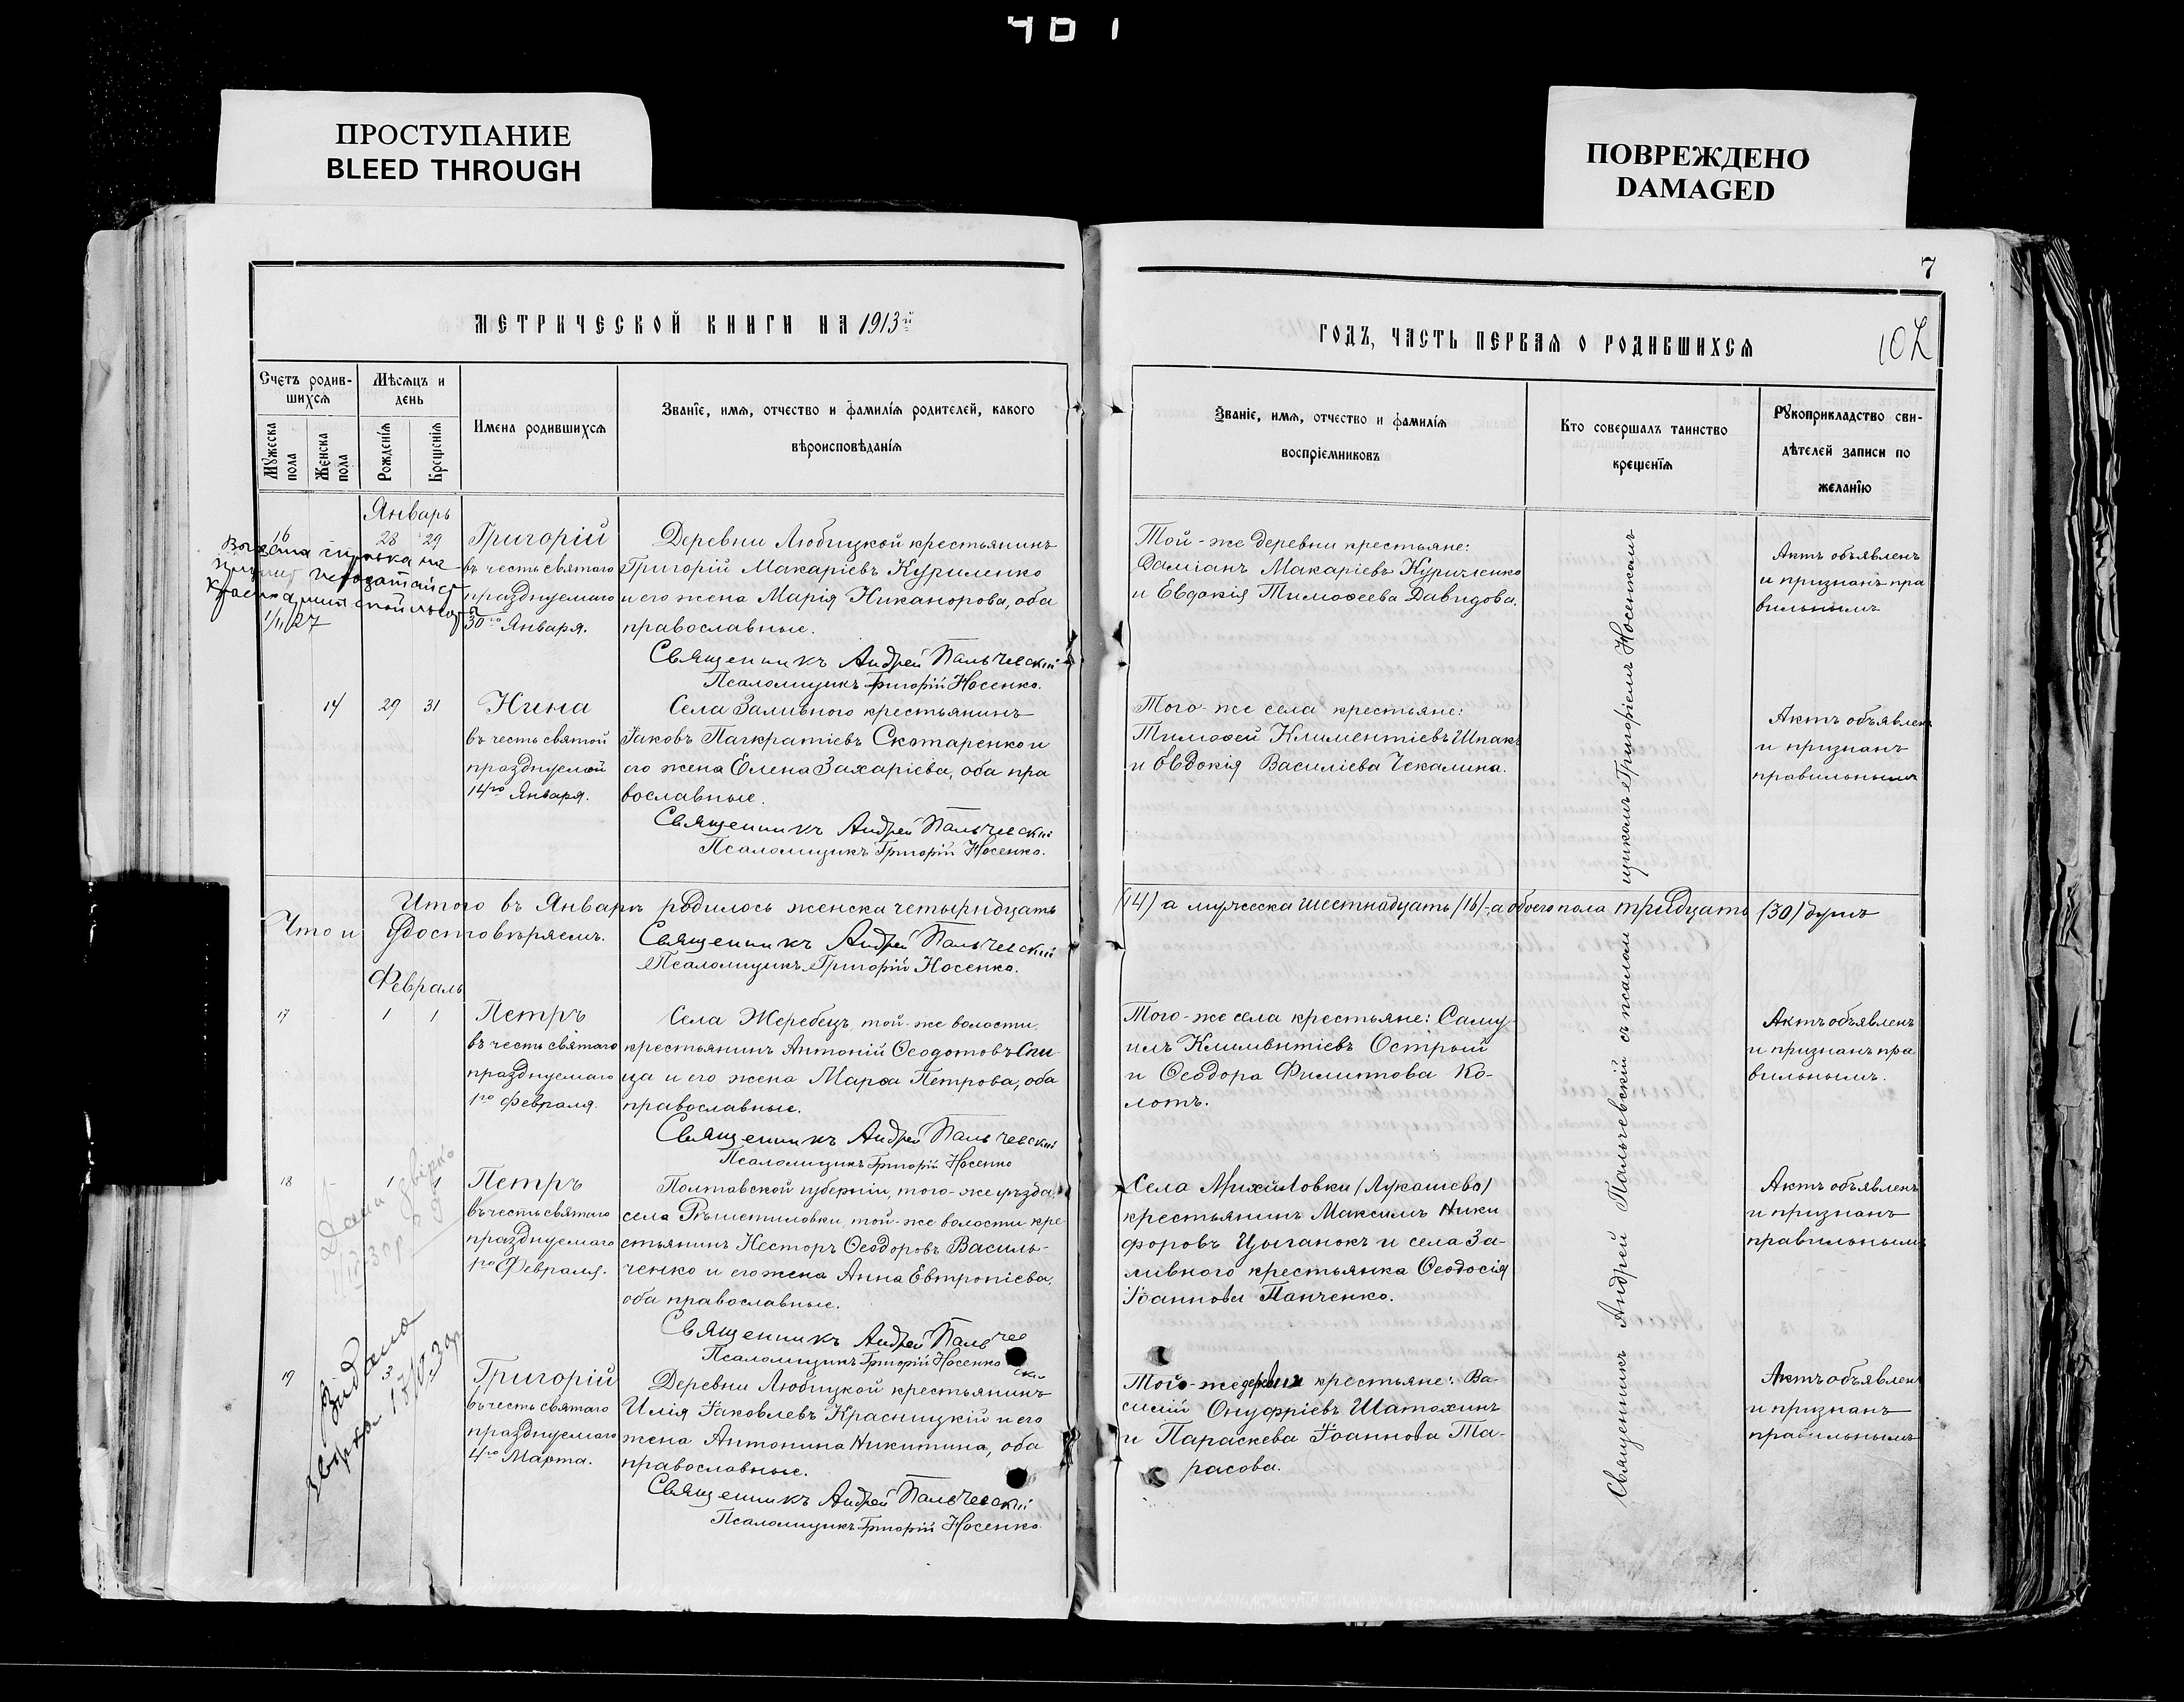 401
ПРОСТУПАНИЕ
BLEED THROUGH
ПОВРЕЖДЕНО
DAMAGED
МЕТРИЧЕСКОЙ КНИГИ НА 1913й
Счетъ родив-
шихся
Мужеска пола
Женска пола
Мѣсяцъ и
день
Рожденія
Крещенія
Имена родившихся
Званіе, имя, отчество и фамилія родителей, какого
вѣроисповѣданія
Январь
16 28 29
Григорій
въ честь святаго
празднуемаго
30го Января.
Деревни Любицкой крестьянинъ
Григорій Макаріевъ Куриленко
и его жена Марія Никанорова, оба
православные.
Священникъ Андрей Пальчевскій
Псаломщикъ Григорій Носенко.
1/II/27
14 29 31
Нина
въ честь святой
празднуемой
14го Января.
Села Заливного крестьянинъ
Іаковъ Панкратіевъ Скотаренко и
его жена Елена Захаріева, оба пра
вославные.
Священникъ Андрей Пальчевскій
Псаломщикъ Григорій Носенко.
Итого въ Январѣ родилось женска четырнадцать
Что и удостовѣряемъ.
Священникъ Андрей Пальчевскій
Псаломщикъ Григорій Носенко.
Февраль
17 1 1
Петръ
въ честь святаго
празднуемаго
1го Февраля.
Села Жеребецъ, той-же волости,
крестьянинъ Антоній Ѳеодотовъ Спи-
ца и его жена Марѳа Петрова, оба
православные.
Священникъ Андрей Пальчевскій
Псаломщикъ Григорій Носенко
18 1 1
Петръ
въ честь святаго
празднуемаго
1го Февраля.
Полтавской губерніи, того-же уѣзда,
села Рѣшетиловки, той-же волости кре
стьянинъ Несторъ Ѳеодоровъ Василь-
ченко и его жена Анна Евтропіева,
оба православные.
Священникъ Андрей Пальчев
ски
Псаломщикъ Григорій Носенко
19 3
Григорій
въ честь святаго
празднуемаго
4го Марта.
Деревни Любицкой крестьянинъ
Илія Іаковлевъ Красницкій и его
жена Антонина Никитина, оба
православные.
Священникъ Андрей Пальчевскій
Псаломщикъ Григорій Носенко.
7
102
ГОДЪ, ЧАСТЬ ПЕРВАЯ О РОДИВШИХСЯ
Званіе, имя, отчество и фамилія
воспріемниковъ
Кто совершалъ таинство
крещенія
Рукоприкладство сви-
дѣтелей записи по
желанію
Той-же деревни крестьяне:
Даміанъ Макаріевъ Куриленко
и Евдокія Тимоѳеева Давидова.
Актъ объявленъ
и признанъ пра
вильнымъ
Того-же села крестьяне:
Тимоѳей Климентіевъ Шпакъ
и Евдокія Василіева Чекалина.
Актъ объявлен
и признанъ
правильнымъ
(14) а мужеска шестнадцать (16), а обоего пола тридцать (30) душъ
Того-же села крестьяне: Саму-
илъ Климентіевъ Острый
и Ѳеодора Филиппова Ко-
лотъ.
Актъ объявленъ
и признанъ пра
вильнымъ.
Села Михайловки (Лукашево)
крестьянинъ Максимъ Ники
форовъ Цыганокъ и села За-
ливного крестьянка Ѳеодосія
Іоаннова Панченко.
Актъ объявленъ
и признанъ
правильнымъ
Той-же деревни крестьяне: Ва-
силій Онуфріевъ Шатохинъ
и Параскева Іоаннова Та-
расова.
Актъ объявлен
и признанъ
правильнымъ
Священникъ Андрей Пальчевскій съ псаломщикомъ Григоріемъ Носенкомъ